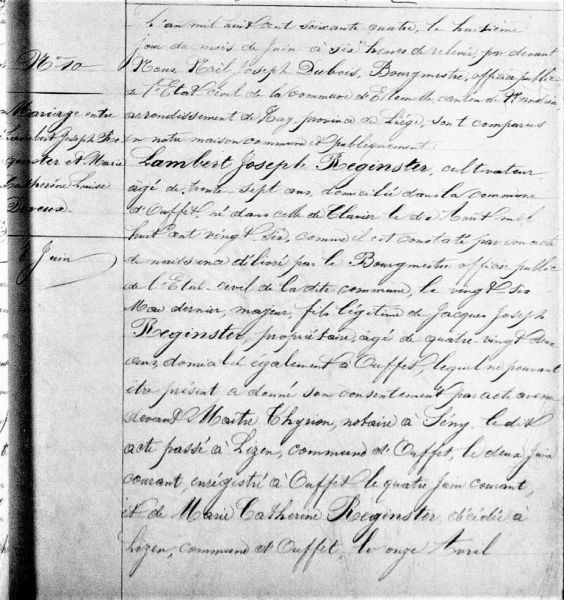 N° 10
Mariage entre
Lambert Joseph Re
ginster et Marie
Catherine Louise
Deveux.
Juin
L'an mil huit cent soixante quatre, le huitième
jour du mois de Juin à six heures de relevée, par devant
Nous, Noël Joseph Dubois, Bourgmestre, officier public
de l'Etat civil de la commune d' canton de Nandrin
arrondissement de Huy, province de Liége, sont comparus
en notre maison commune et publiquement:
Lambert Joseph Reginster, cultivateur
agé de trente-sept ans, domicilié dans la commune
d'Ouffet, né dans celle de Clavier le dix Août mil
huit cent vingt six, comme il est constaté par son acte
de naissance délivré par le Bourgmestre officier public
de l'Etat-civil de la dite commune, le vingt six
Mai dernier, majeur, fils légitime de Jacques Joseph
Reginster, propriétaire, agé de quatre vingt deux
ans, domicilié également à Ouffet, lequel ne pouvant
être présent a donné son consentement par acte avenu
devant Maitre Thyrion, notaire à le dit
acte passé à Lizen, commune d'Ouffet, le deux Juin
courant, enrégistré à Ouffet le quatre Juin courant,
et de Marie Catherine Reginster, décédée à
Lizen, commune d'Ouffet, le onze Avril